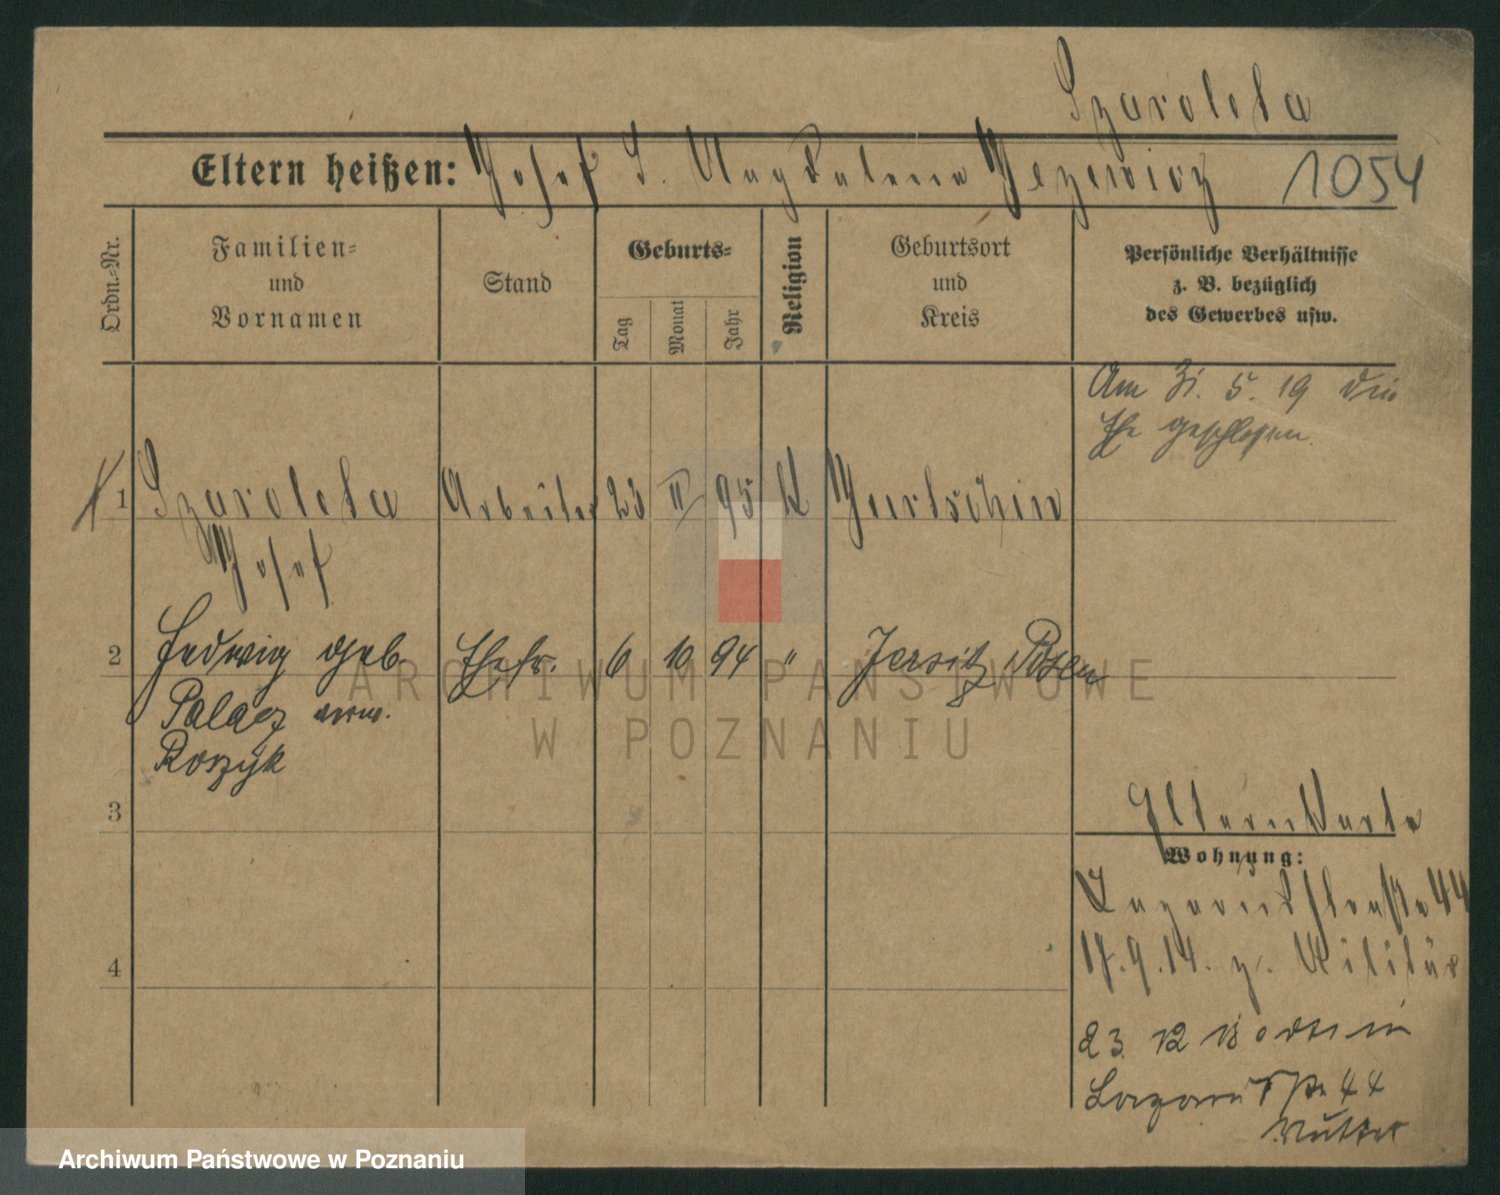 Szarolela
Eltern heißen: Josef S. Magdalena Jezewicz 1054
Ordn.-Nr.
Familien-
und
Vornamen
Stand
Geburts-
Tag
Monat
Jahr
Religion
Geburtsort
und
Kreis
Persönliche Verhältnisse
z. B. bezüglich
des Gewerbes usw.
Am 31. 5. 19 die
Ehe geschlossen.
1 Szarolela Arbeiter 23 II 95 K
Josef
2 Hedwig geb. Ehefr. 6 10 94 " Jersitz Posen
Palacz verw.
Roszyk
3
Elternkarte
Wohnung:
Lazarusstraße 44
4
17.9.14. z. Militär
23. 12 18
44
Mutter
ARCHIWUM PAŃSTWOWE
W POZNANIU
Archiwum Państwowe w Poznaniu